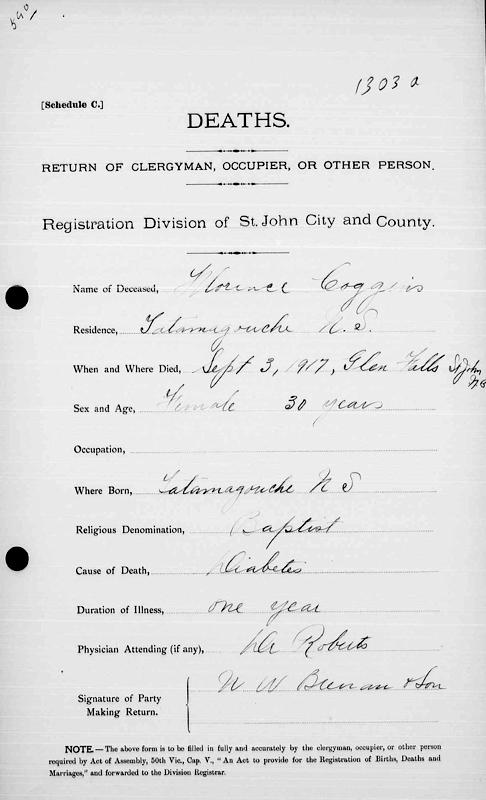 1303a
[Schedule C.]
DEATHS.
RETURN OF CLERGYMAN, OCCUPIER, OR OTHER PERSON.
Registration Division of St. John City and County.
Name of Deceased, Florence Coggins
Residence, Tatamagouche N.S.
When and Where Died, Sept 3, 1917, Glen Falls St John N.B
Sex and Age, Female 30 years
Occupation,
Where Born, Tatamagouche N S
Religious Denomination, Baptist
Cause of Death, Diabetes
Duration of Illness, one year
Physician Attending (if any), Dr Roberts
Signature of Party Making Return. N W Brenan & Son
NOTE.—The above form is to be filled in fully and accurately by the clergyman, occupier, or other person
required by Act of Assembly, 50th Vic., Cap. V., "An Act to provide for the Registration of Births, Deaths and
Marriages," and forwarded to the Division Registrar.